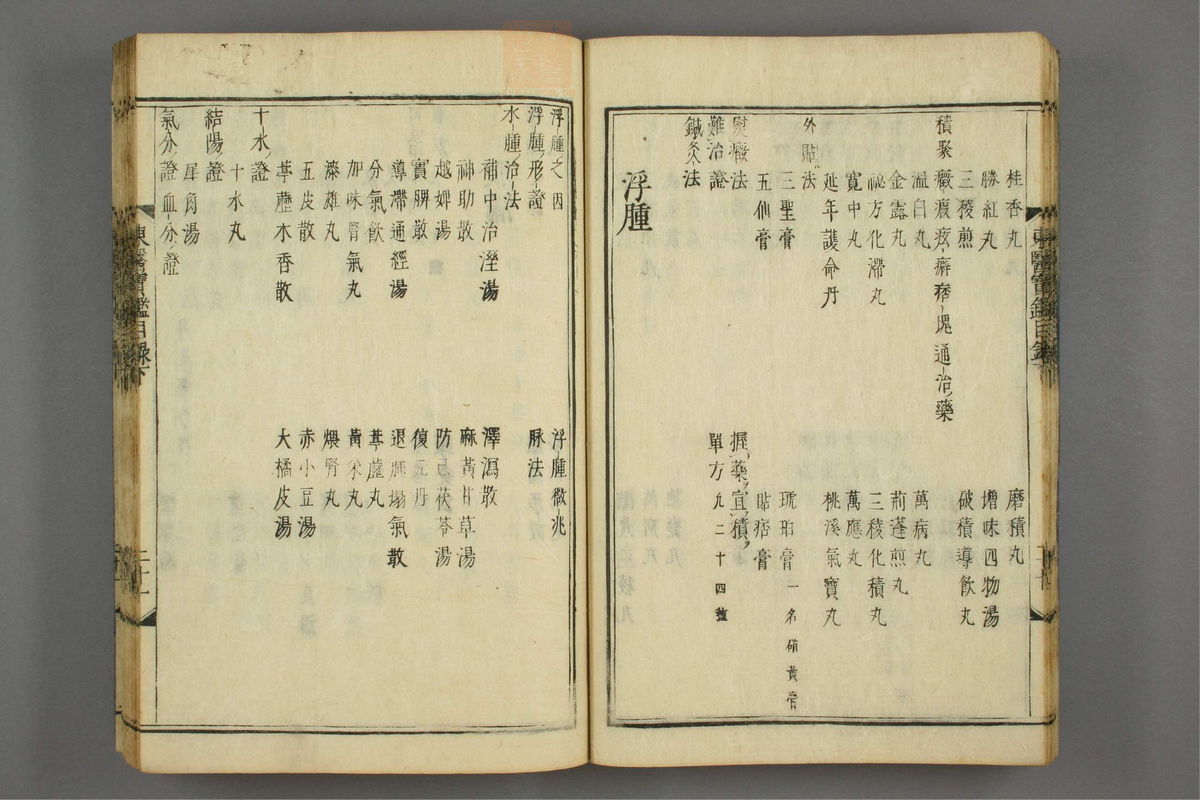 桂香丸　磨積丸
勝紅丸　增味四物湯
三稜煎　破積導飲丸
積聚癥瘕痃癖痞塊通治藥
溫白丸　萬病丸
金露丸　莿蓬煎丸
祕方化滯丸　三稜化積丸
寬中丸　萬應丸
延年護命丹　桃溪氣寶丸
外貼法
三聖膏　琥珀膏一名硝黃膏
五仙膏　貼痞膏
熨癥法　握藥宜積
難治證　單方凡二十四種
鍼灸法
浮腫
浮腫之因　浮腫微兆
浮腫形證　脉法
水腫治法
補中治溼湯　澤瀉散
神助散　麻黃甘草湯
越婢湯　防己茯苓湯
實脾散　復元丹
導滯通經湯　退腫塌氣散
分氣飮　葶藶丸
加味腎氣丸　黃米丸
漆雄丸　煨腎丸
五皮散　赤小豆湯
葶藶木香散　大橘皮湯
十水證
十水丸
結陽證
犀角湯
氣分證血分證
東醫寶鑑目錄下
東醫寶鑑目錄下　二十一